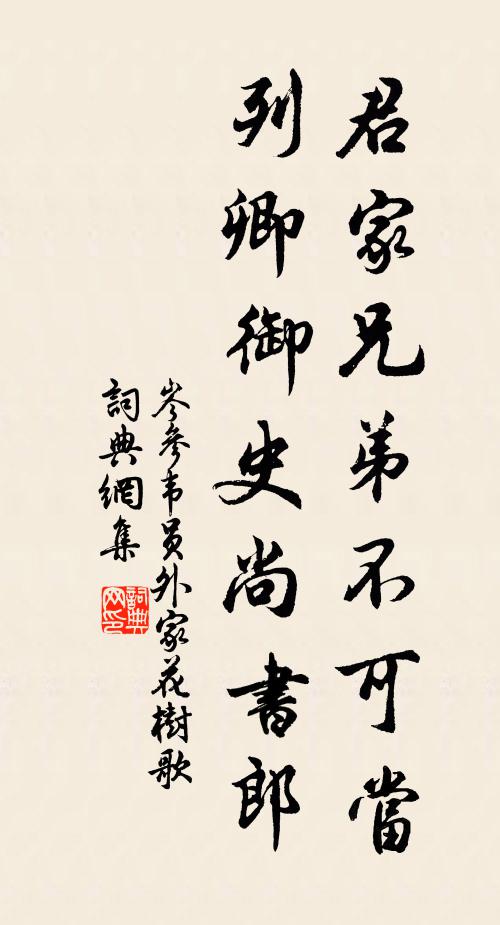 君家兄弟不可當
列卿御史尚書郎
岑參韦員外家花樹歌
詞典網集
詞典网印